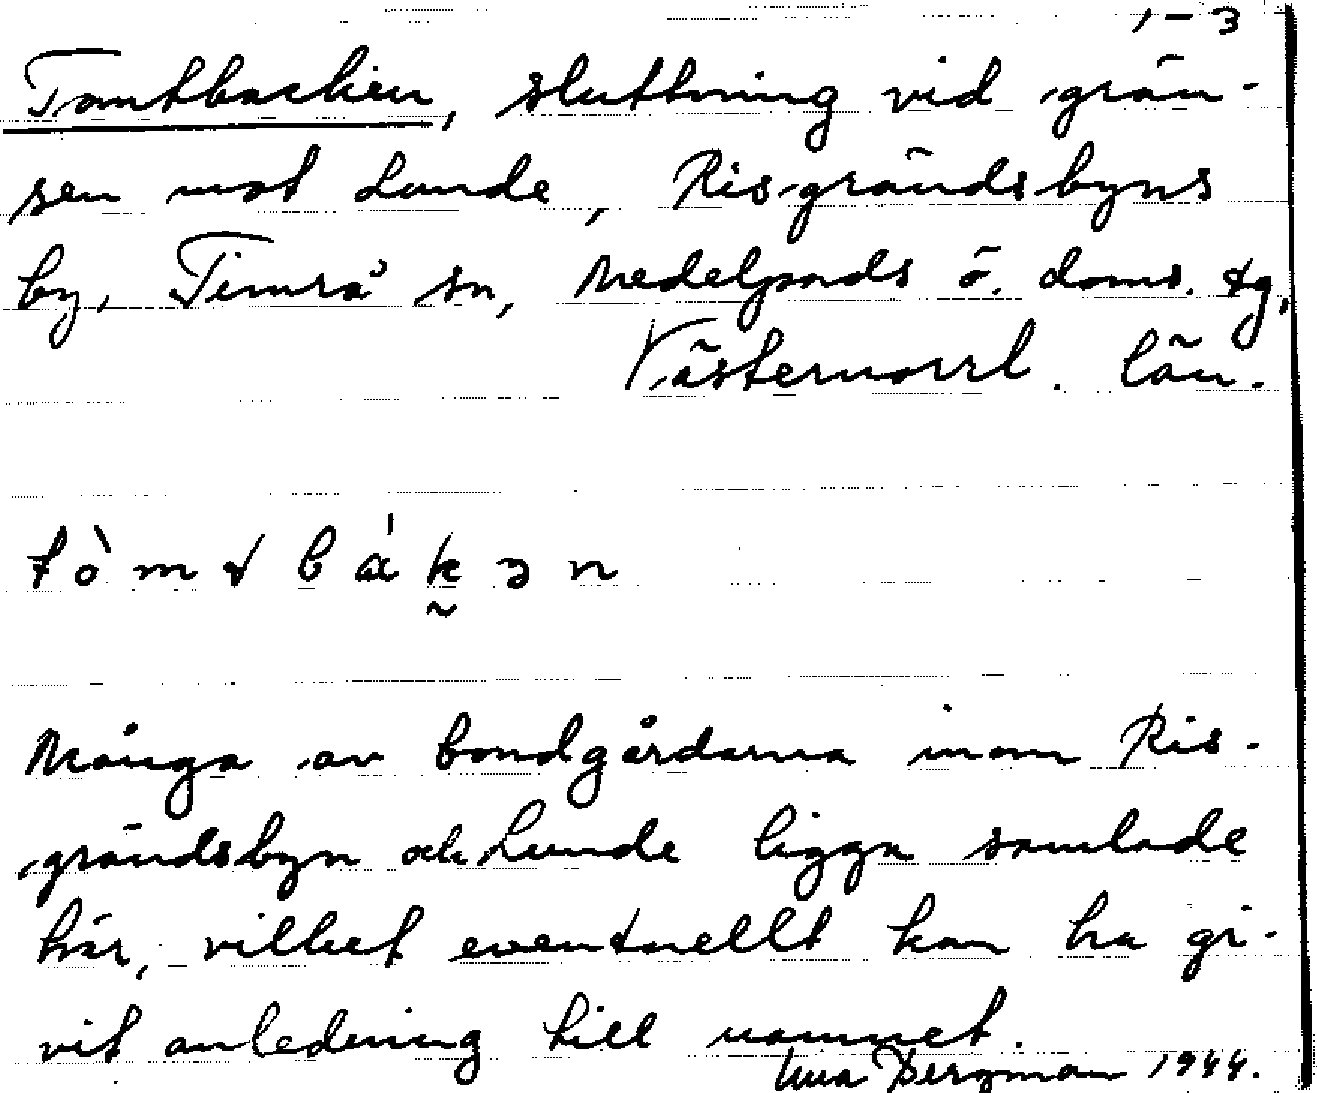 1-3
Tomtbacken, sluttning vid grän-
sen mot Lunde, Risgrändsbyns
by, Timrå sn, Medelpads ö. doms. tg,
Västernorrl. län.
tòmtbákən
Många av bondgårdarna inom Ris-
grändsbyn och Lunde ligga samlade
här, vilket eventuellt kan ha gi-
vit anledning till namnet.
Bergman 1944.